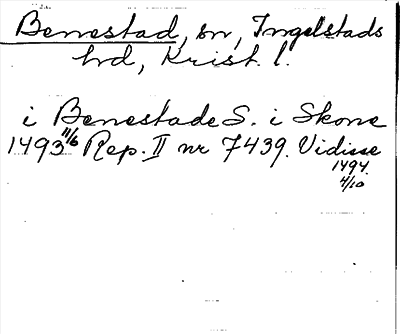 Benestad, sn, Ingelstads
hd, Krist. l.
i Benestade S. i Skone
1493 11/6 Rep. II nr 7439. Vidisse
1494.
4/10